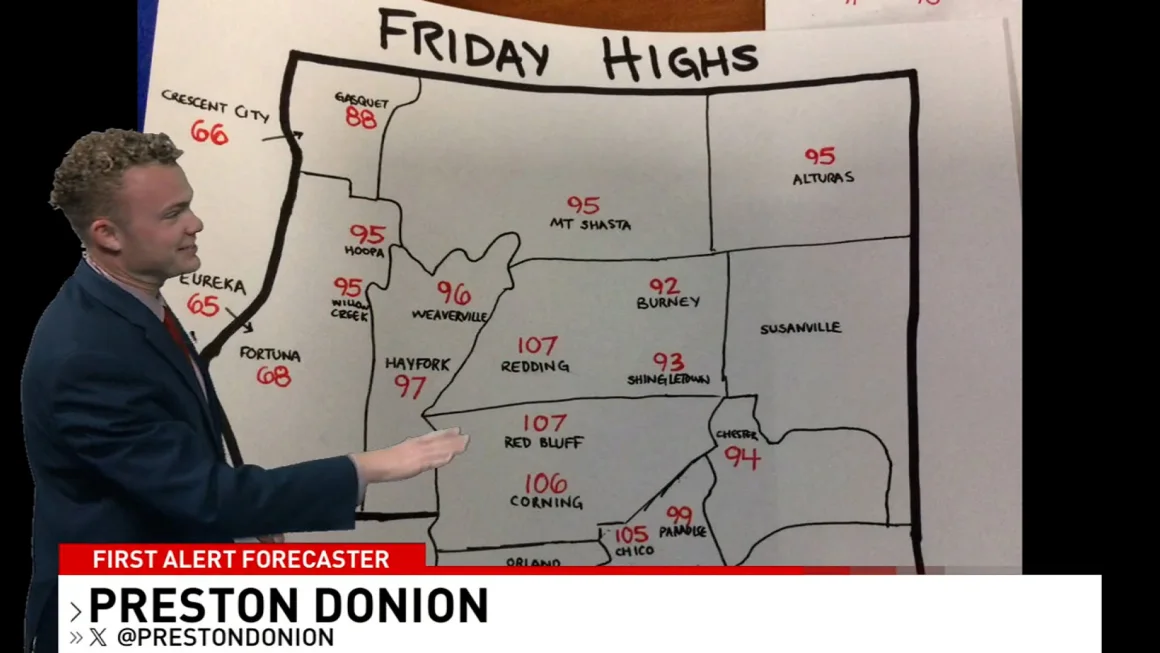 FRIDAY HIGHS
CRESCENT CITY
66
GASQUET
88
95
ALTURAS
95
MT SHASTA
95
HOOPA
EUREKA
65
95
WILLOW
CREEK
96
WEAVERVILLE
92
BURNEY
SUSANVILLE
FORTUNA
68
HAYFORK
97
107
REDDING
93
SHINGLETOWN
107
RED BLUFF
CHESTER
94
106
CORNING
99
PARADISE
105
CHICO
ORLAND
FIRST ALERT FORECASTER
PRESTON DONION
X @PRESTONDONION